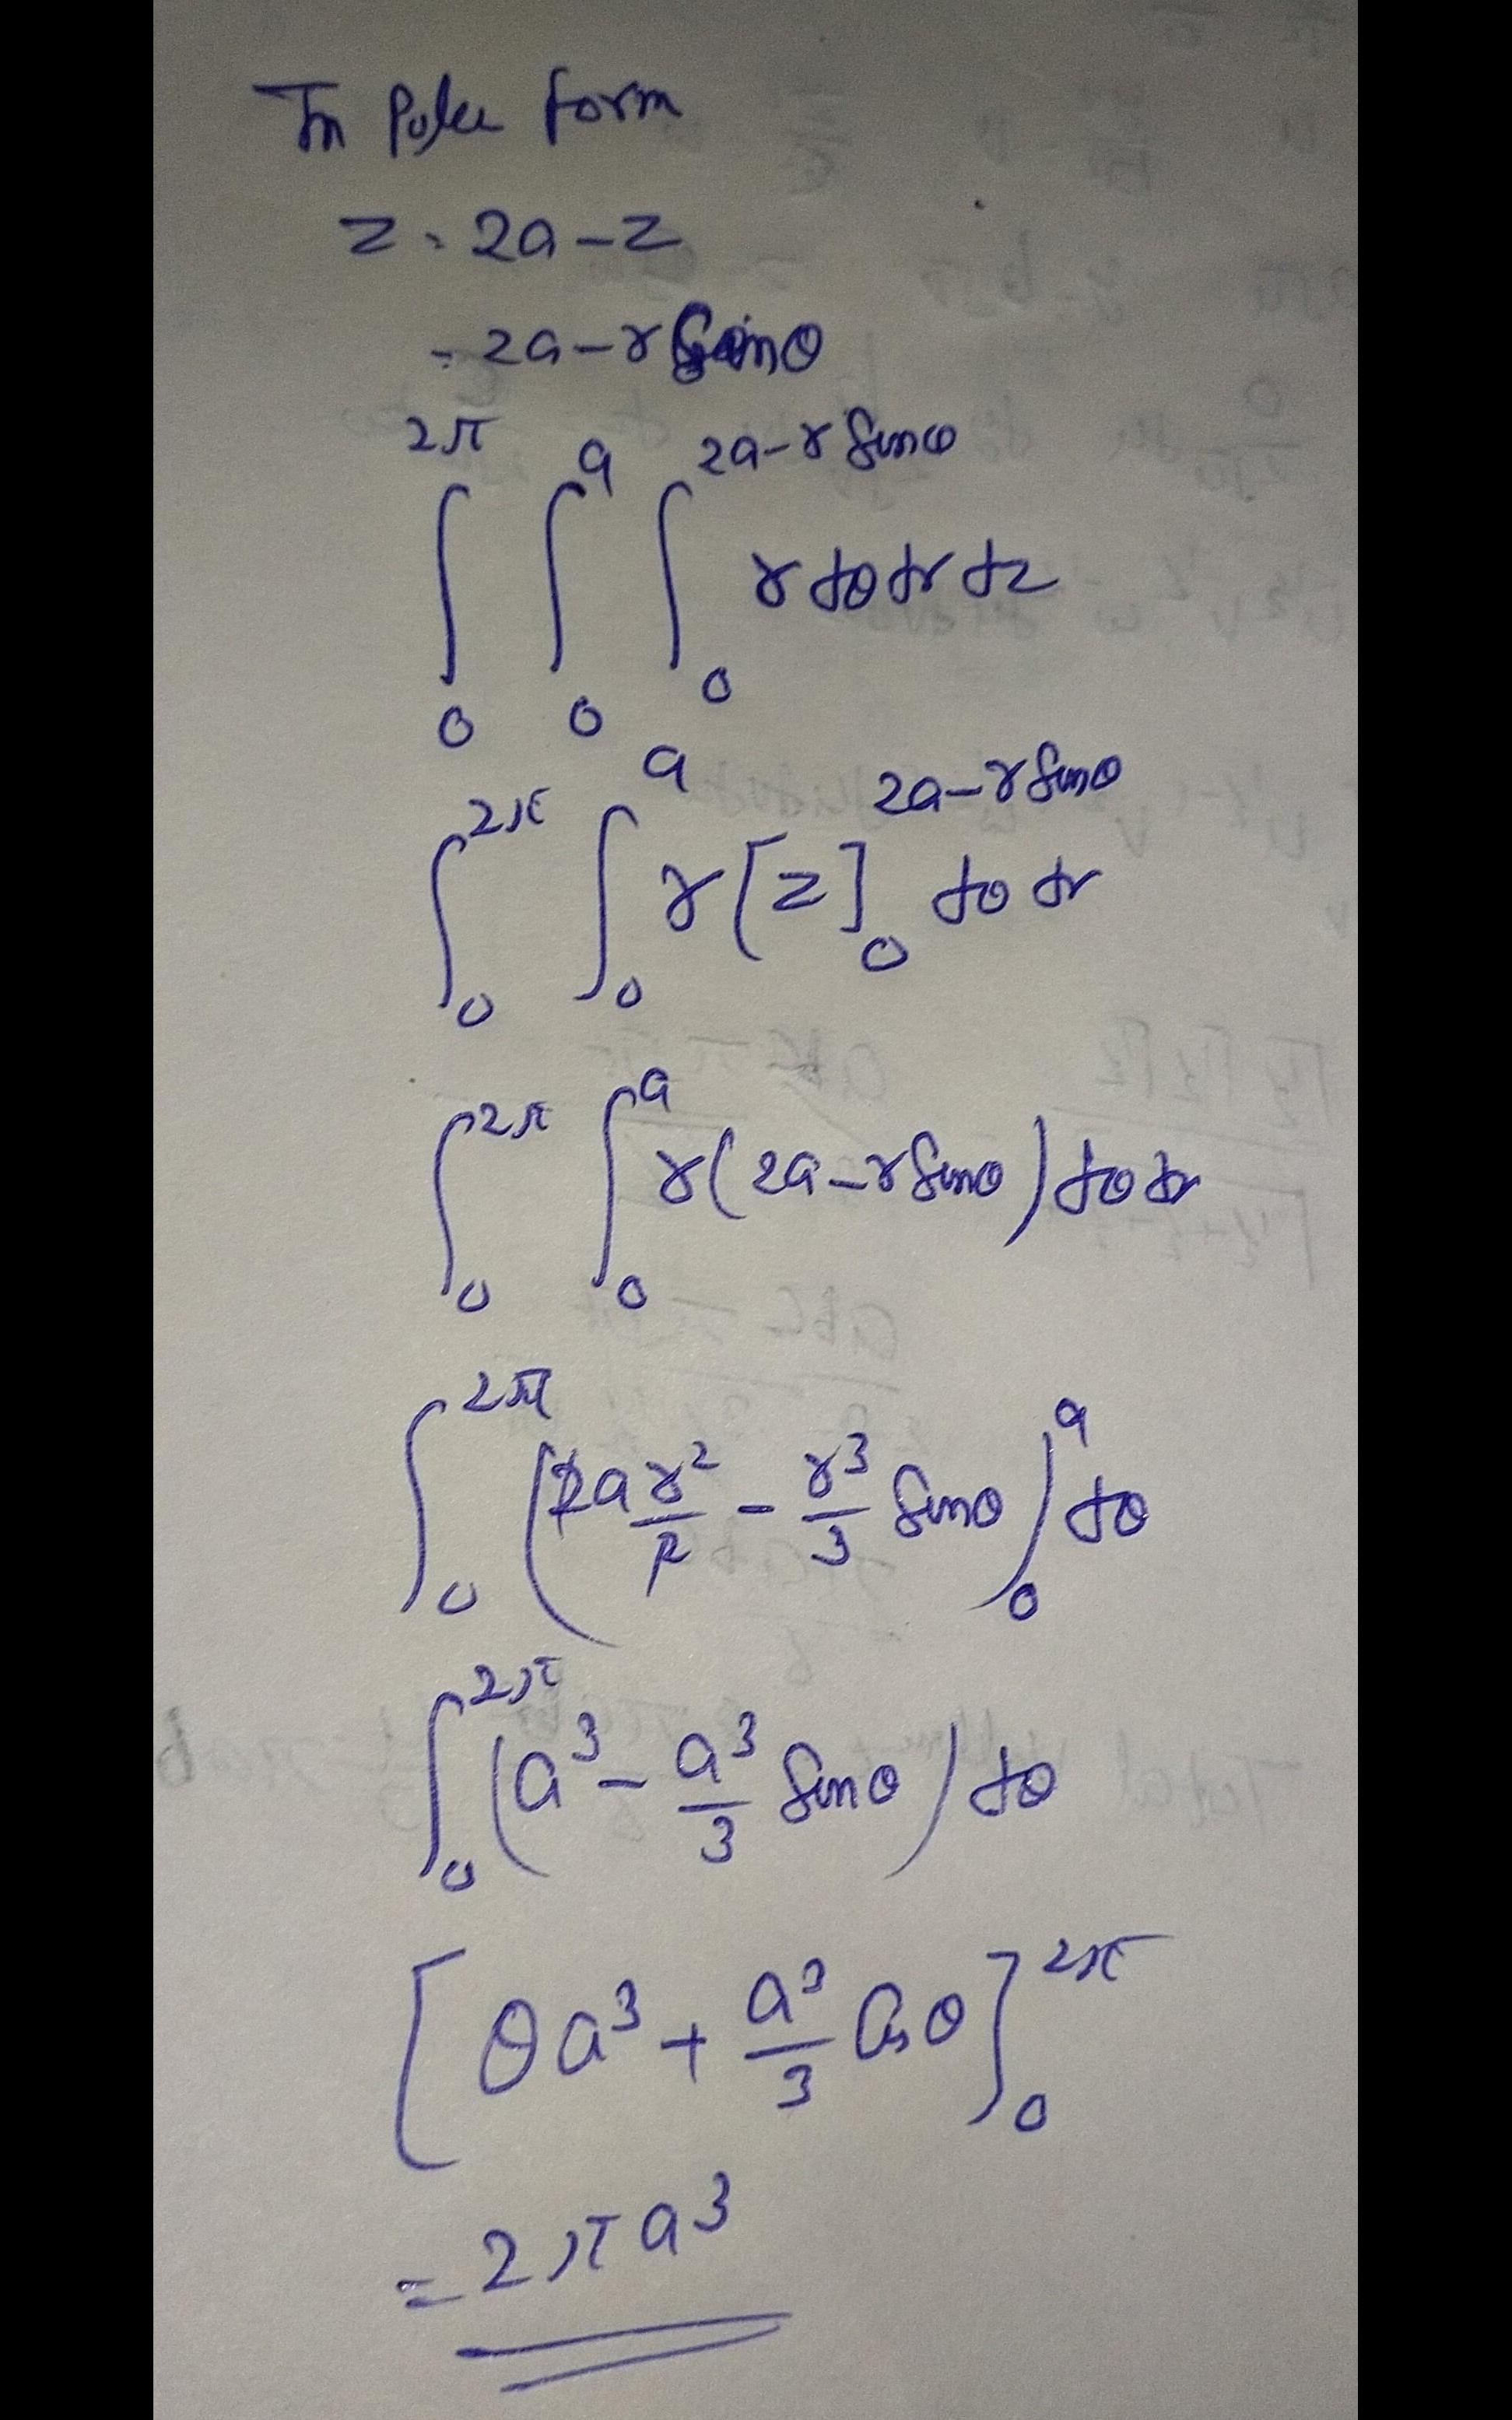 In Polar form
z = 2a - z
= 2a - r sinθ
∫₀^{2π} ∫₀^{a} ∫₀^{2a - r sinθ} r dθ dr dz
∫₀^{2π} ∫₀^{a} r [z]₀^{2a - r sinθ} dθ dr
∫₀^{2π} ∫₀^{a} r (2a - r sinθ) dθ dr
∫₀^{2π} (2a r²/2 - r³/3 sinθ)₀^{a} dθ
∫₀^{2π} (a³ - a³/3 sinθ) dθ
[θa³ + a³/3 Cosθ]₀^{2π}
= 2πa³